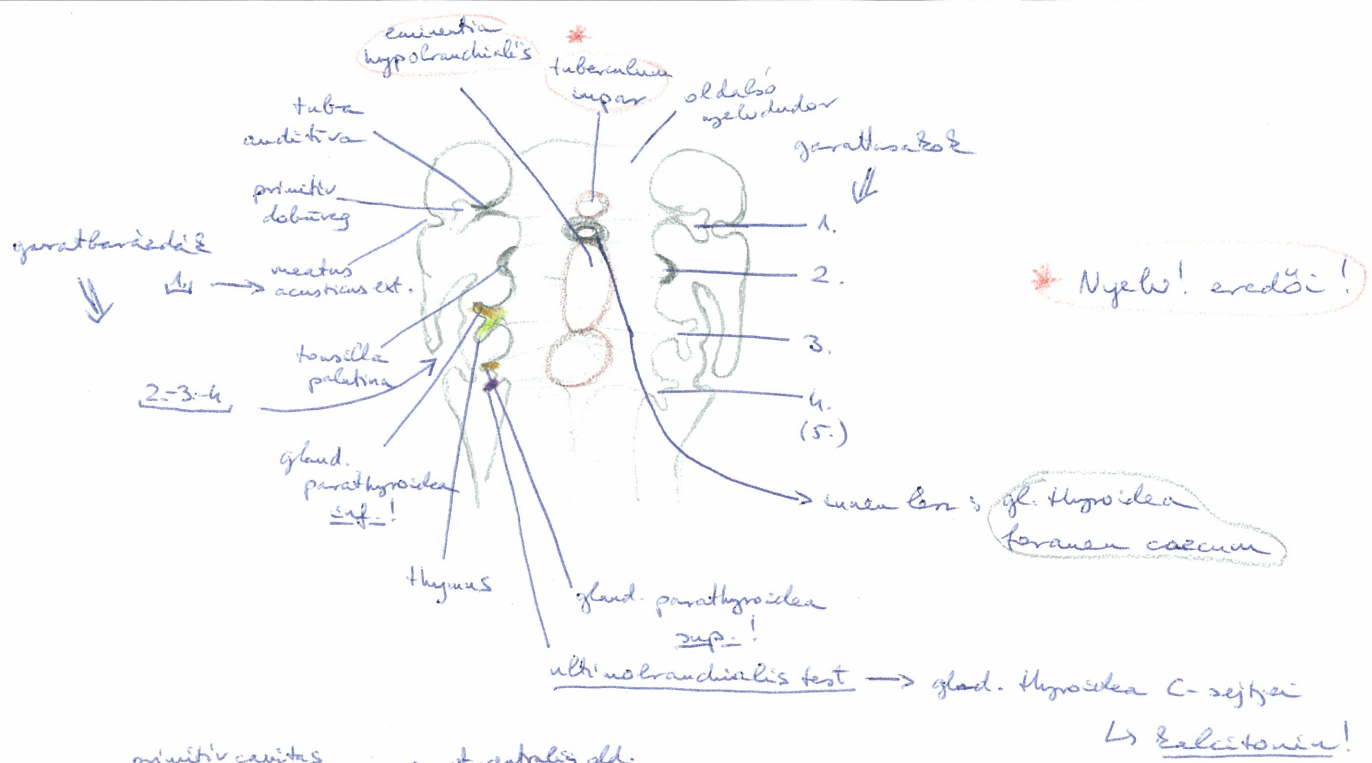 eminentia
hypobranchialis
*
tuberculum
impar
oldalsó
nyelvdudor
garattasakok
tuba
auditiva
primitiv
dobüreg
garatbarázdák
1.
meatus
acusticus ext.
1.
2.
3.
4.
(5.)
* Nyelv! eredői!
tonsilla
palatina
2.-3.-4
gland.
parathyroidea
inf.!
innen lesz: gl. thyroidea
foramen caecum
thymus
gland. parathyroidea
sup.!
ultimobranchialis test → gland. thyroidea C-sejtjei
↳ kalcitonin!
primitiv cavitas
ventralis old.